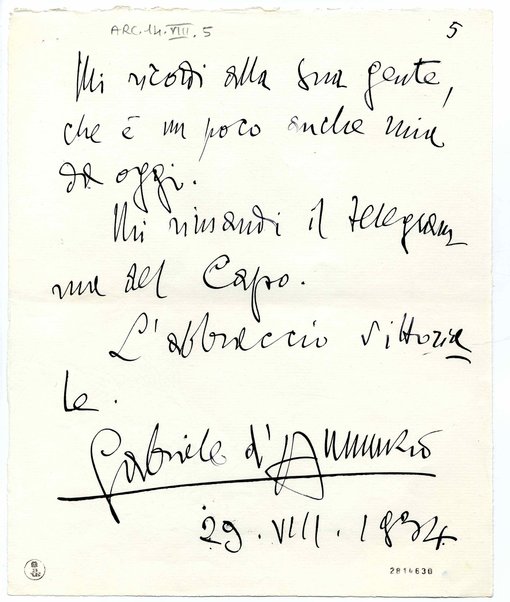 ARC.14.VIII.5
5
Mi ricordi alla sua gente,
che è un poco anche mia
da oggi.
Mi rimandi il telegram
ma del Capo.
L'abbraccio vittoria
le.
Gabriele d'Annunzio
29.VIII.1934
2814630